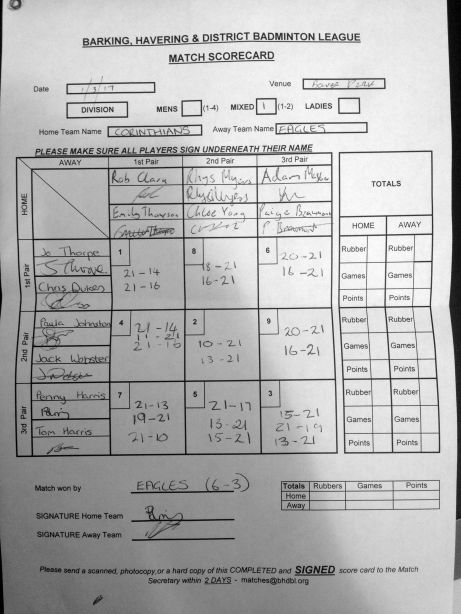 BARKING, HAVERING & DISTRICT BADMINTON LEAGUE
MATCH SCORECARD
Date 1/3/17 Venue
DIVISION MENS (1-4) MIXED 1 (1-2) LADIES
Home Team Name CORINTHIANS Away Team Name EAGLES
PLEASE MAKE SURE ALL PLAYERS SIGN UNDERNEATH THEIR NAME
AWAY 1st Pair 2nd Pair 3rd Pair
HOME
Rob Clark Rhys Myers Adam
Emily Thomson Chloe Yong Paige Beaumont
P Beaumont
TOTALS
HOME AWAY
1st Pair
Jo Thorpe
Chas Dukes
1 21-14 21-16
8 18-21 16-21
6 20-21 16-21
Rubber Rubber
Games Games
Points Points
2nd Pair
Paula Johnston
Jack Webster
4 21-14 11-21 21-16
2 10-21 13-21
9 20-21 16-21
Rubber Rubber
Games Games
Points Points
3rd Pair
Penny Harris
Tom Harris
7 21-13 19-21 21-10
5 21-17 13-21 15-21
3 15-21 21-19 13-21
Rubber Rubber
Games Games
Points Points
Match won by EAGLES (6-3)
Totals Rubbers Games Points
Home
Away
SIGNATURE Home Team
SIGNATURE Away Team
Please send a scanned, photocopy, or a hard copy of this COMPLETED and SIGNED score card to the Match
Secretary within 2 DAYS - matches@bhdbl.org